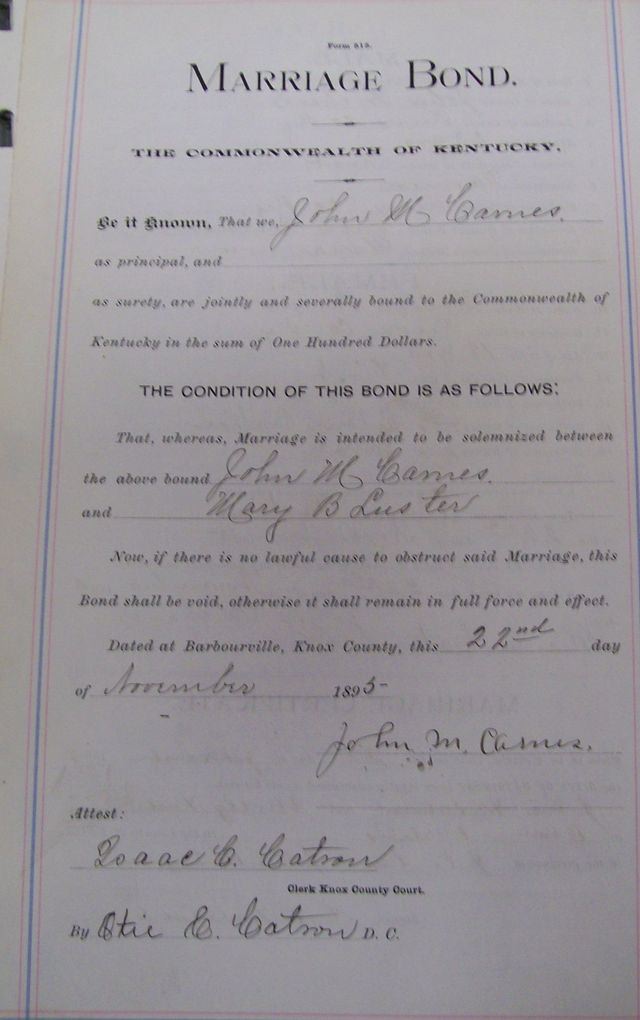 Form 513.
MARRIAGE BOND.
THE COMMONWEALTH OF KENTUCKY.
Be it Known, That we, John M Carnes.
as principal, and
as surety, are jointly and severally bound to the Commonwealth of
Kentucky in the sum of One Hundred Dollars.
THE CONDITION OF THIS BOND IS AS FOLLOWS:
That, whereas, Marriage is intended to be solemnized between
the above bound John M Carnes.
and Mary B Luster
Now, if there is no lawful cause to obstruct said Marriage, this
Bond shall be void, otherwise it shall remain in full force and effect.
Dated at Barbourville, Knox County, this 22nd day
of November 1895
John M. Carnes.
Attest:
Isaac C. Catron
Clerk Knox County Court.
By Otie C. Catron D. C.
MARRIAGE CERTIFICATE